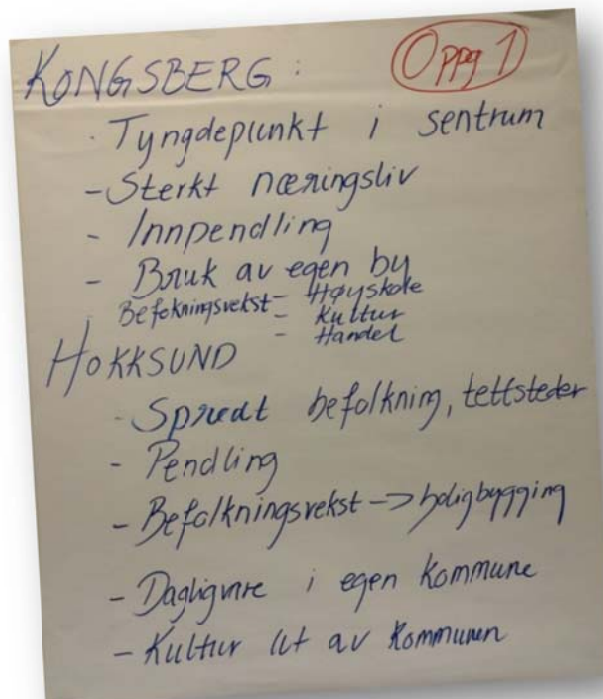 KONGSBERG : Oppg 1
· Tyngdepunkt i sentrum
- Sterkt næringsliv
- Innpendling
- Bruk av egen by
Befokningsvekst - Høyskole
- Kultur
- Handel
HOKKSUND
- Spredt befolkning, tettsteder
- Pendling
- Befolkningsvekst -> boligbygging
- Dagligvare i egen kommune
- Kultur ut av kommunen